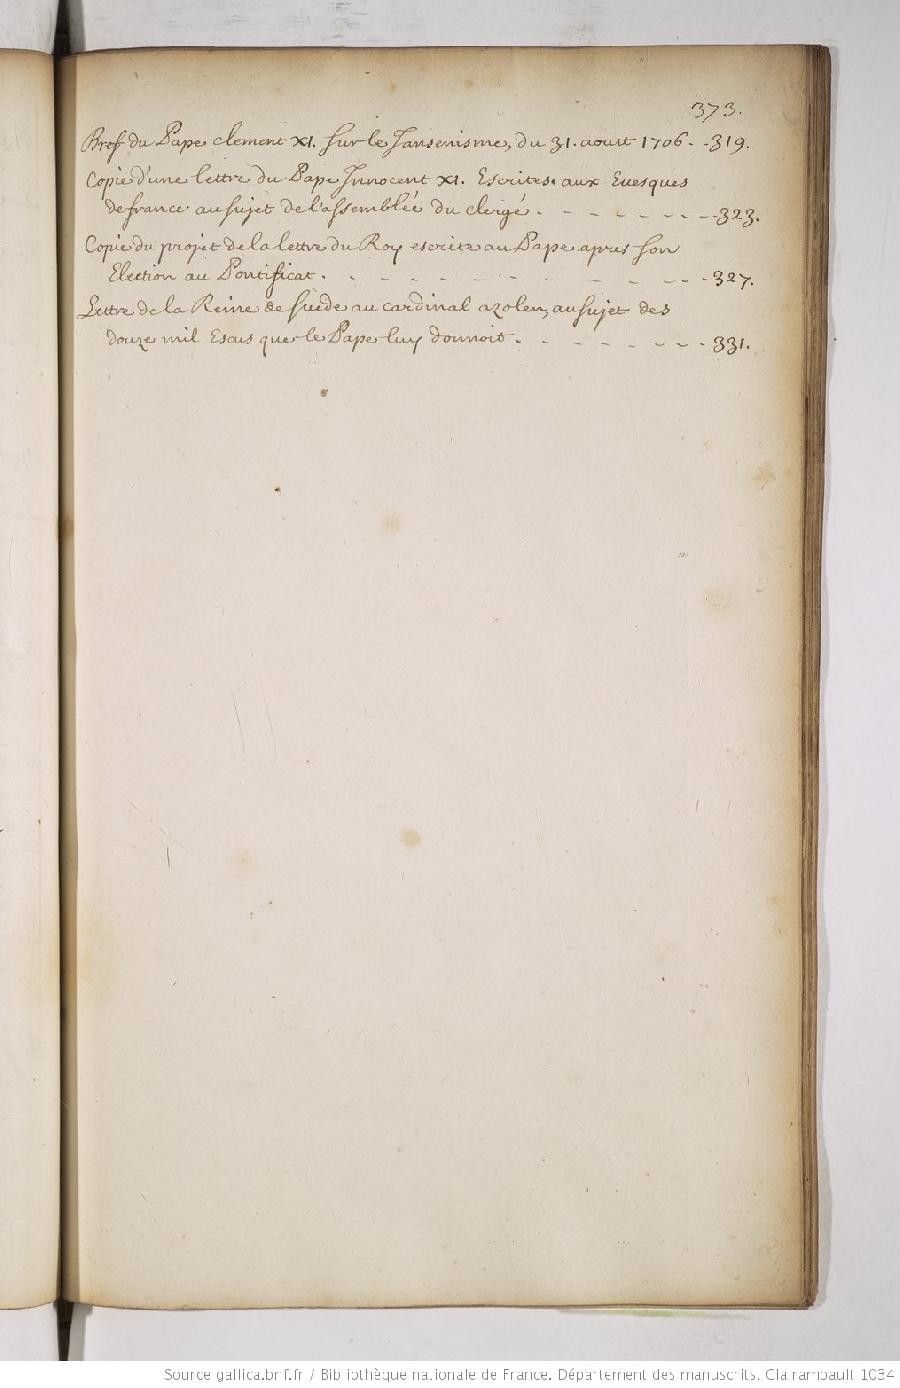 373.
Bref du Pape Clement XI. sur le Jansenisme, du 31. aoust 1706. - - 319.
Copie d'une lettre du Pape Innocent XI. Escrites. aux Evesques
de france au sujet de l'assemblée du clergé . - - - - - - - - 323.
Copie du projet de la lettre du Roy escrite au Pape apres son
Election au Pontificat . - - - - - - - - - - - 327.
Lettre de la Reine de Suede au cardinal azolin, au sujet des
douze mil Escus que le Pape luy donnoit . - - - - - - - - 331.
Source gallica.bnf.fr / Bibliothèque nationale de France. Département des manuscrits. Clairambault 1034